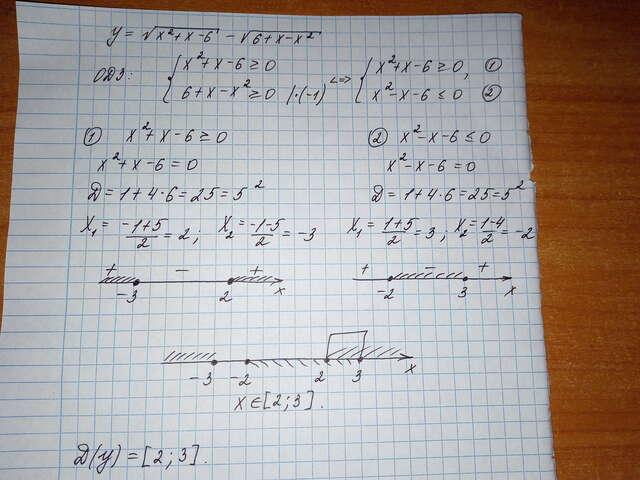 y = √x²+x-6 - √6+x-x²
ОДЗ: { x²+x-6≥0
6+x-x²≥0 |·(-1) <=> { x²+x-6≥0, ①
x²-x-6≤0 ②
① x²+x-6≥0
x²+x-6=0
Д=1+4·6=25=5²
x₁= -1+5/2 =2; x₂= -1-5/2 =-3
+ - +
-3 2 x
② x²-x-6≤0
x²-x-6=0
Д=1+4·6=25=5²
x₁= 1+5/2 =3; x₂= 1-4/2 =-2
+ - +
-2 3 x
-3 -2 2 3 x
x∈[2;3].
Д(y)=[2;3].